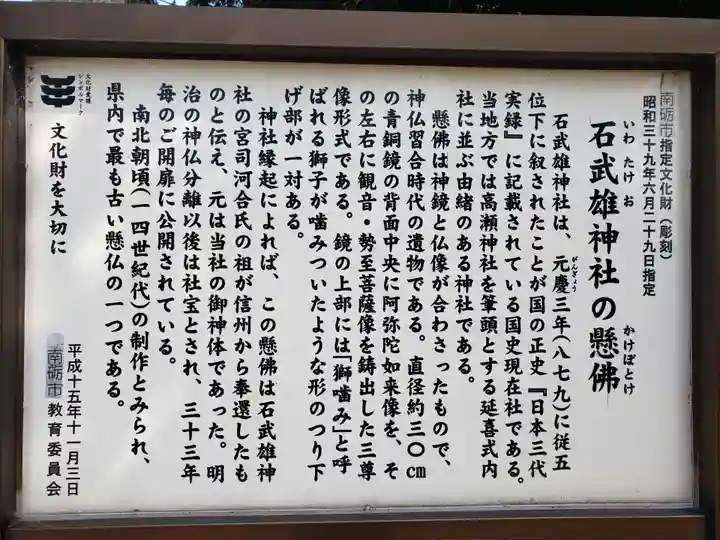 南砺市指定文化財(彫刻)
昭和三十九年六月二十九日指定
いわ たけ お
かけぼとけ
石武雄神社の懸佛
がんぎょう
石武雄神社は、元慶三年(八七九)に従五
位下に叙されたことが国の正史『日本三代
実録』に記載されている国史現在社である。
当地方では高瀬神社を筆頭とする延喜式内
社に並ぶ由緒のある神社である。
懸佛は神鏡と仏像が合わさったもので、
神仏習合時代の遺物である。直径約三〇cm
の青銅鏡の背面中央に阿弥陀如来像を、そ
の左右に観音・勢至菩薩像を鋳出した三尊
像形式である。鏡の上部には「獅噛み」と呼
ばれる獅子が噛みついたような形のつり下
げ部が一対ある。
神社縁起によれば、この懸佛は石武雄神
社の宮司河合氏の祖が信州から奉還したも
のと伝え、元は当社の御神体であった。明
治の神仏分離以後は社宝とされ、三十三年
毎のご開扉に公開されている。
南北朝頃(一四世紀代)の制作とみられ、
県内で最も古い懸仏の一つである。
平成十五年十一月三日
南砺市教育委員会
文化財愛護
シンボルマーク
文化財を大切に